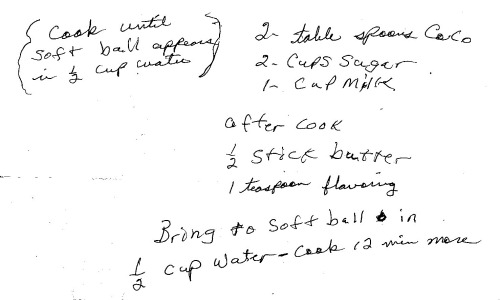 Cook until
soft ball appears
in 1/2 cup water
2- table spoons CoCo
2- Cups Sugar
1- Cup Milk
after cook
1/2 Stick butter
1 teaspoon flavoring
Bring to soft ball in
1/2 cup water - Cook 12 min more